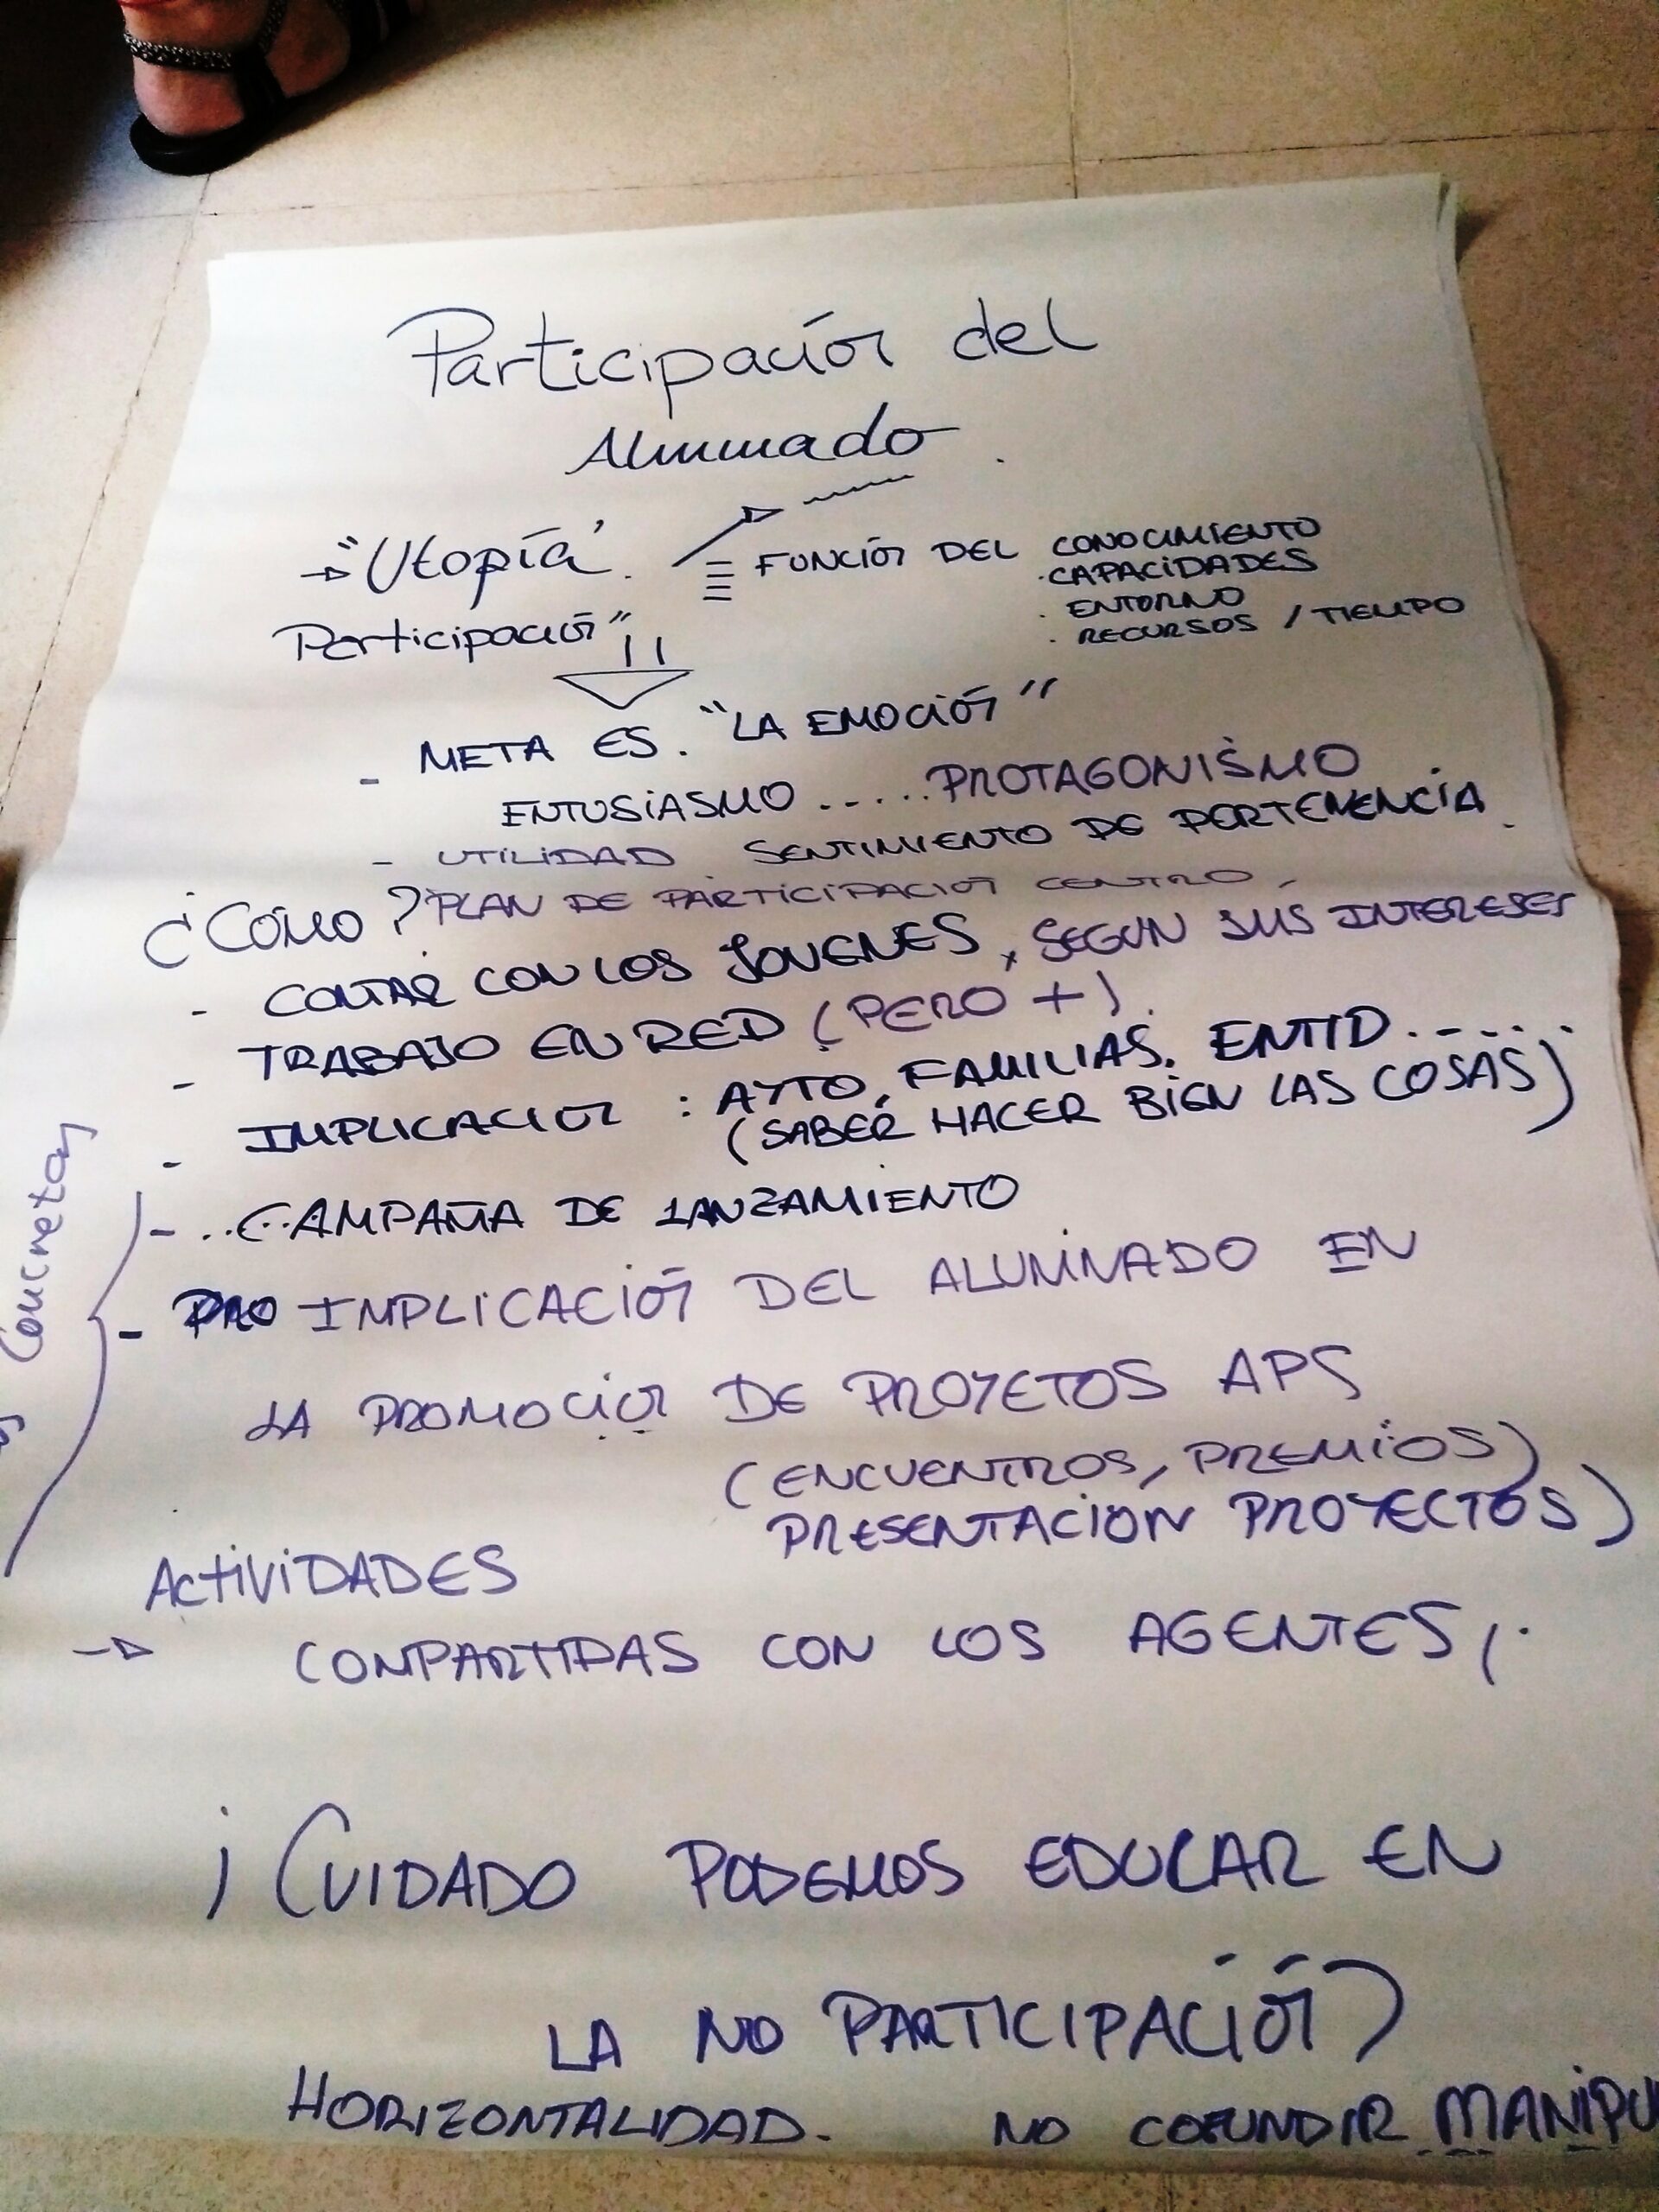 Participación del
Alumnado
"Utopía"
FUNCIÓN DEL CONOCIMIENTO
· CAPACIDADES
· ENTORNO
· RECURSOS / TIEMPO
Participación"
- META ES. "LA EMOCIÓN"
ENTUSIASMO ..... PROTAGONISMO
- UTILIDAD SENTIMIENTO DE PERTENENCIA
¿CÓMO? PLAN DE PARTICIPACION CENTRO
- CONTAR CON LOS JOVENES, SEGUN SUS INTERESES
- TRABAJO EN RED (PERO +)
- IMPLICACION : AYTO, FAMILIAS. ENTID.....
(SABER HACER BIEN LAS COSAS)
Concretas
- ... CAMPAÑA DE LANZAMIENTO
- PRO IMPLICACIÓN DEL ALUMNADO EN
LA PROMOCION DE PROYETOS APS
(ENCUENTROS, PREMIOS)
PRESENTACION PROYECTOS)
ACTIVIDADES
→ COMPARTIDAS CON LOS AGENTES,.
¡CUIDADO PODEMOS EDUCAR EN
LA NO PARTICIPACIÓN)
HORIZONTALIDAD. NO COFUNDIR MANIPU